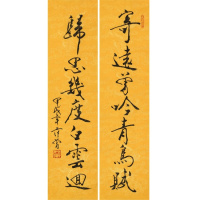 寄遠曾吟青鳥賦
歸思幾度白雲迴
甲戌年